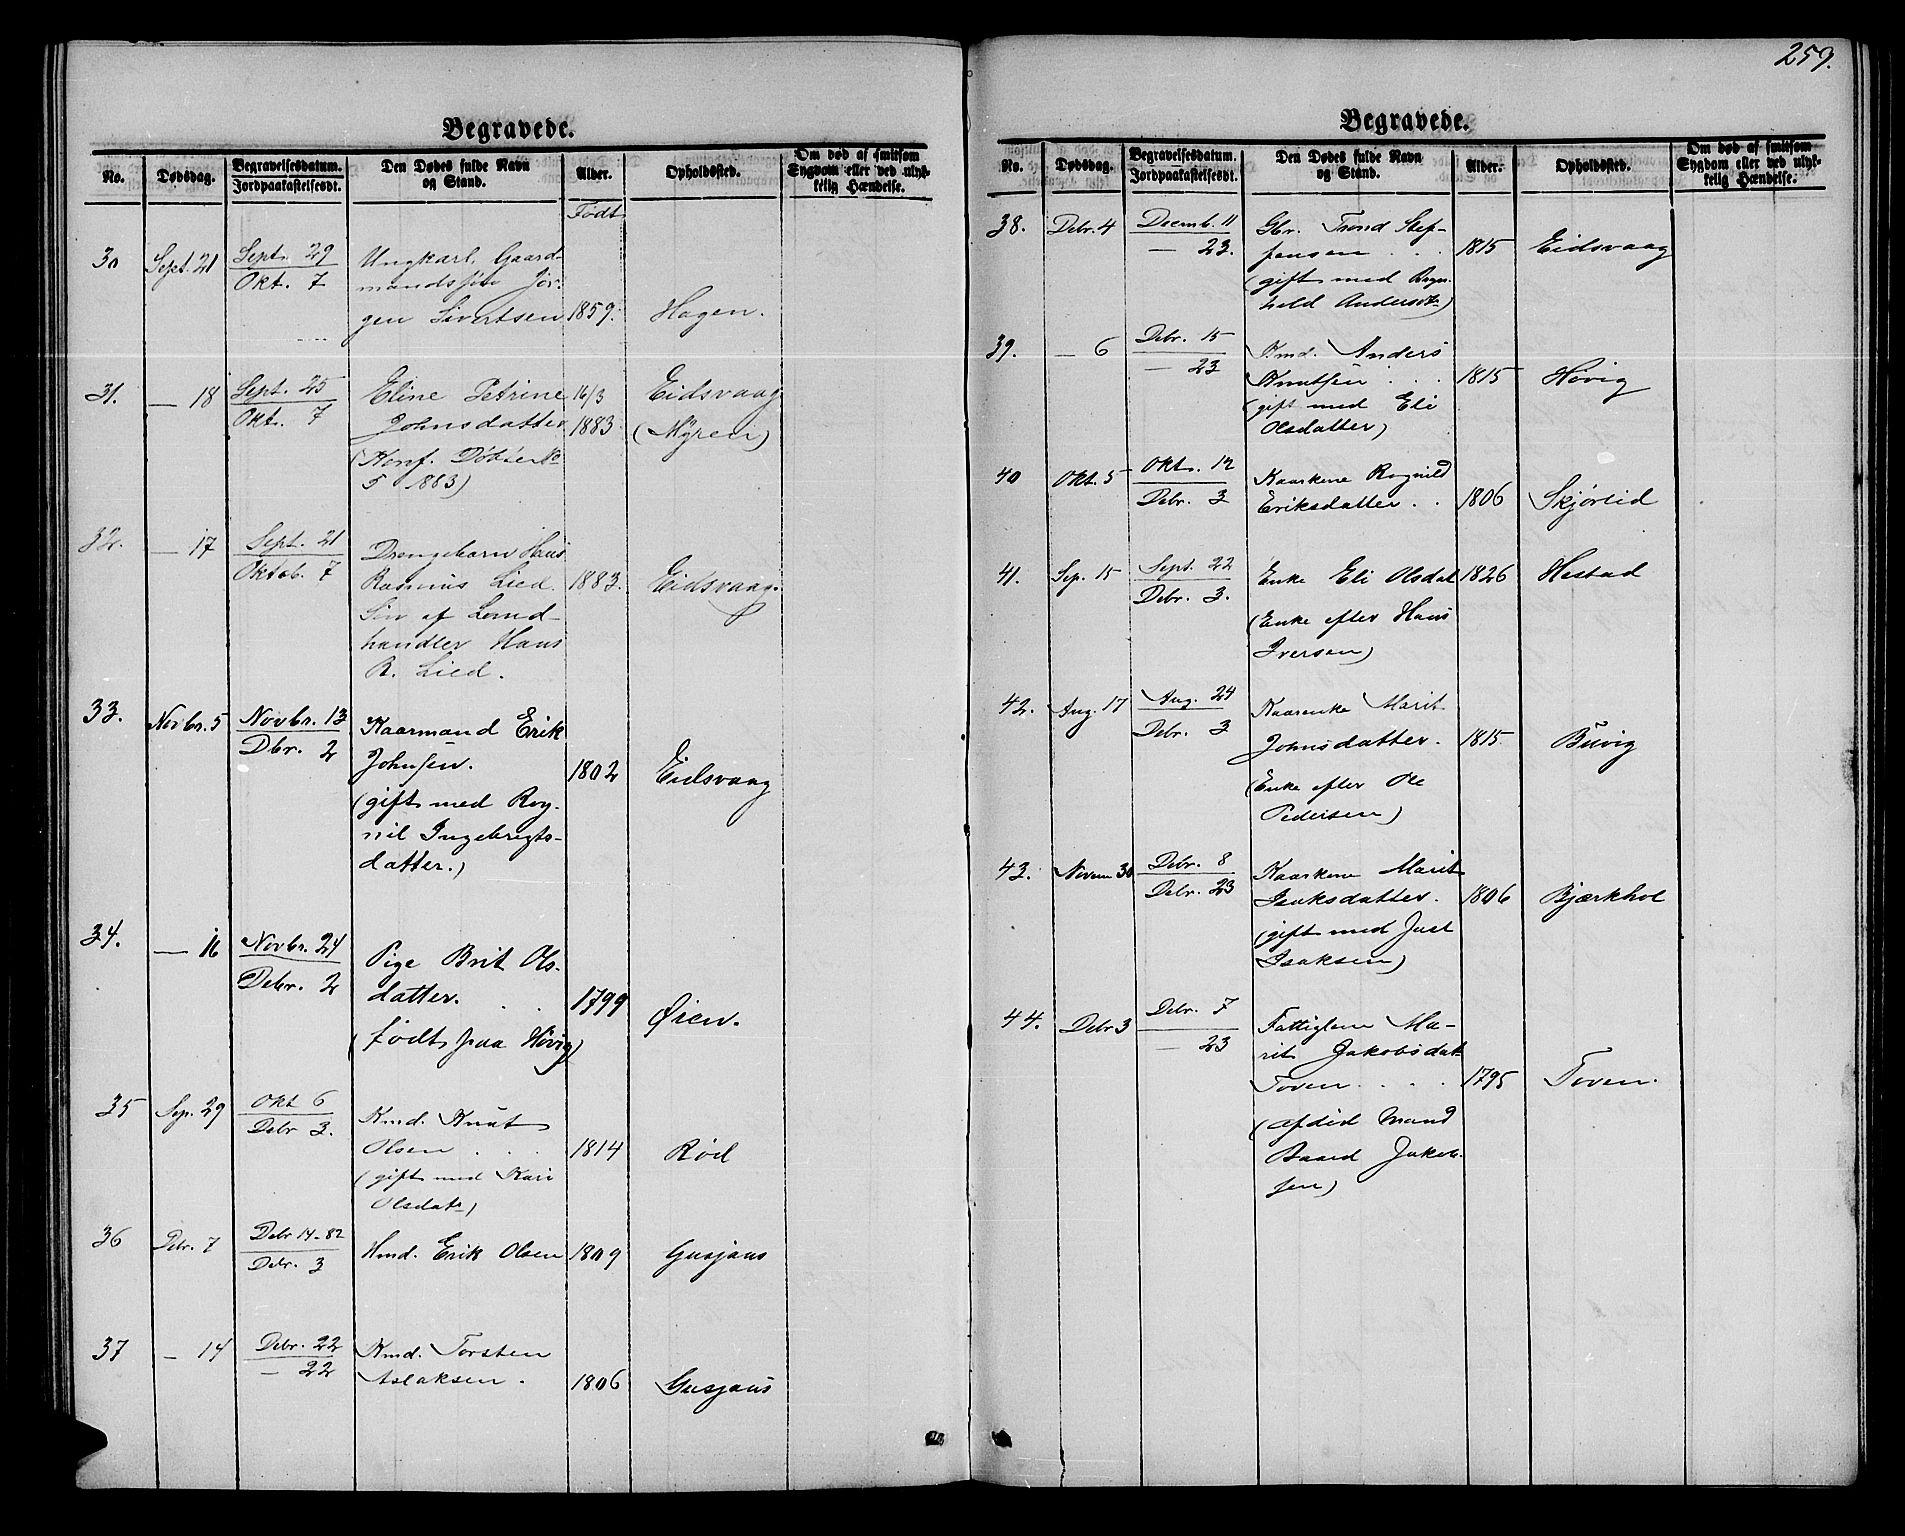 259.
Begravede.
No. Dødsdag. Begravelsesdatum. Jordpaakastelsesdt. Den Dødes fulde Navn og Stand. Alder. Opholdssted. Om død af smitsom Sygdom eller ved ulykkelig Hændelse.
Født
30 Sept. 21 Sept. 29
Okt. 7
Ungkarl, Gaard-
mandssøn Jør-
gen Sivertsen 1859. Hagen.
31. — 18 Sept. 25
Okt. 7
Eline Petrine 16/3 Eidsvaag
Johnsdatter 1883. (Myren)
(Konf. Døbte No
5 1883)
32. — 17 Sept. 21
Oktob. 7
Drengebarn Hans
Rasmus Lied. 1883. Eidsvaag.
Søn af Land-
handler Hans
R. Lied.
33. Novbr. 5 Novbr. 13
Dbr. 2
Kaarmand Erik
Johnsen.
1802 Eidsvaag
(gift med Rog-
nil Ingebrigts-
datter.)
34. — 16 Novbr. 24
Debr. 2
Pige Brit Ols-
datter. . . 1799 Øien.
(født paa Høvig)
35 Sep. 29 Okt 6
Debr 3.
Kmd. Knut
Olsen . . . 1814 Rød
(gift med Kari
Olsdatr)
36 Debr. 7 Debr 14-82
Debr. 3
Hmd. Erik Olsen 1809 Gusjaas
37 — 14 Debr. 22
— 22
Kmd. Torsten
Aslaksen. 1806 Gusjaas
Begravede.
No. Dødsdag. Begravelsesdatum. Jordpaakastelsesdt. Den Dødes fulde Navn og Stand. Alder. Opholdssted. Om død af smitsom Sygdom eller ved ulykkelig Hændelse.
38. Debr. 4 Decemb. 11
— 23.
Gbr. Trond Stef-
fensen . . . 1815 Eidsvaag
(gift med Ragn-
hild Andersdtr)
39. — 6 Debr. 15
— 23
Kmd. Anders
Knutsen . . . 1815 Høvig
(gift med Eli
Olsdatter)
40 Okt. 5 Okt. 12
Debr. 3
Kaarkone Rognild
Eriksdatter . . 1806 Skjørlid
41. Sep. 15 Sept. 22
Debr. 3.
Enke Eli Olsdat 1826 Hestad
(Enke efter Hans
Iversen)
42. Aug. 17 Aug. 24
Debr. 3
Kaarenke Marit
Johnsdatter. 1815. Buvig
(Enke efter Ole
Pedersen)
43. Novem 30 Debr. 8
Debr. 23
Kaarkone Marit
Isaksdatter. 1806 Bjærkhol
(gift med Just
Isaksen)
44. Debr 3 Debr. 7
— 23
Fattiglem Ma-
rit Jakobsdat
Toven . . . . 1795 Toven.
(afdød Mand
Baard Jakob-
sen)